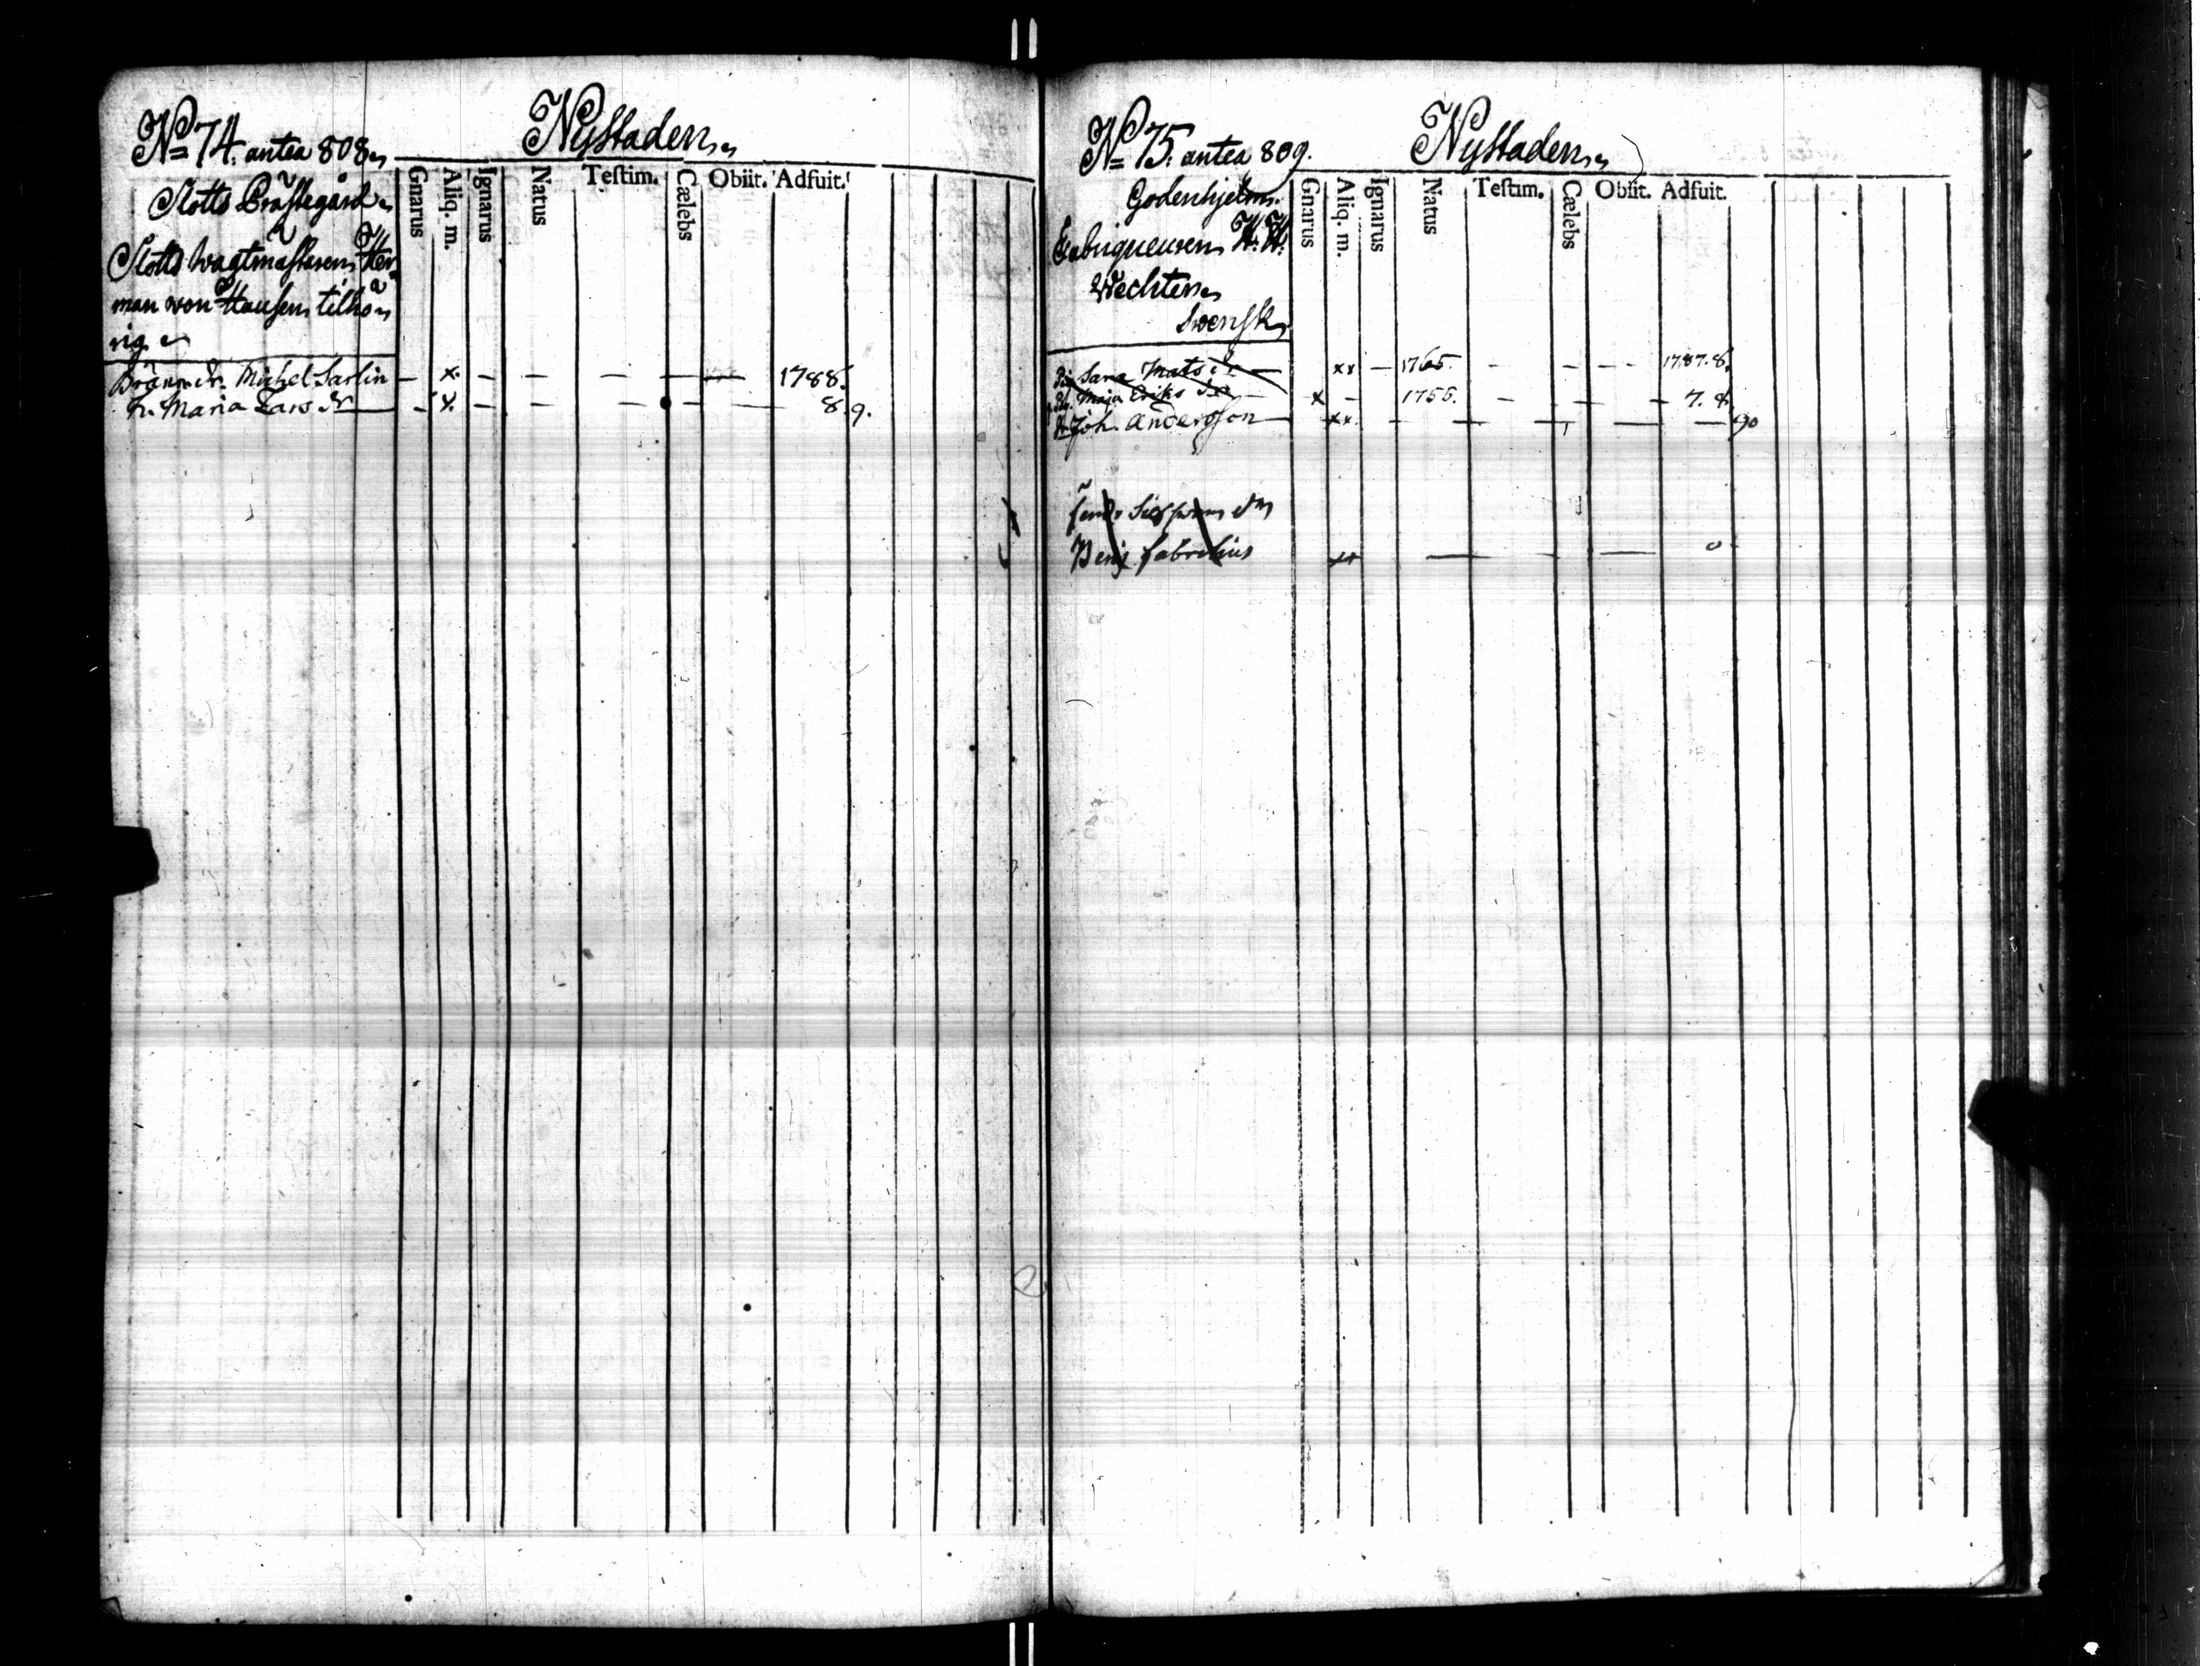 No 74. antea 808.
Nystaden
Slotts Prästegård
Slotts wagtmästaren Her-
man von Hausen tilhö-
rig
Gnarus Aliq. m. Ignarus Natus Testim. Cælebs Obiit. Adfuit.
Michel Sarlin — x. — — — — — 1788.
h. Maria Lars dr — x. — — — — — 8. 9.
No 75. antea 809.
Nystaden
Godenhjelms.
Fabriqueuren H. H.
Wechter
Swensk
Gnarus Aliq. m. Ignarus Natus Testim. Cælebs Obiit. Adfuit.
Pig. Sara Mats dr — xx — 1765. — — — 1787. 8.
Maja Eriks dr x — 1755. — — — 7. 8.
Joh. Andersson — xx. — — — — — 90
Benj Fabrelius xx — — —